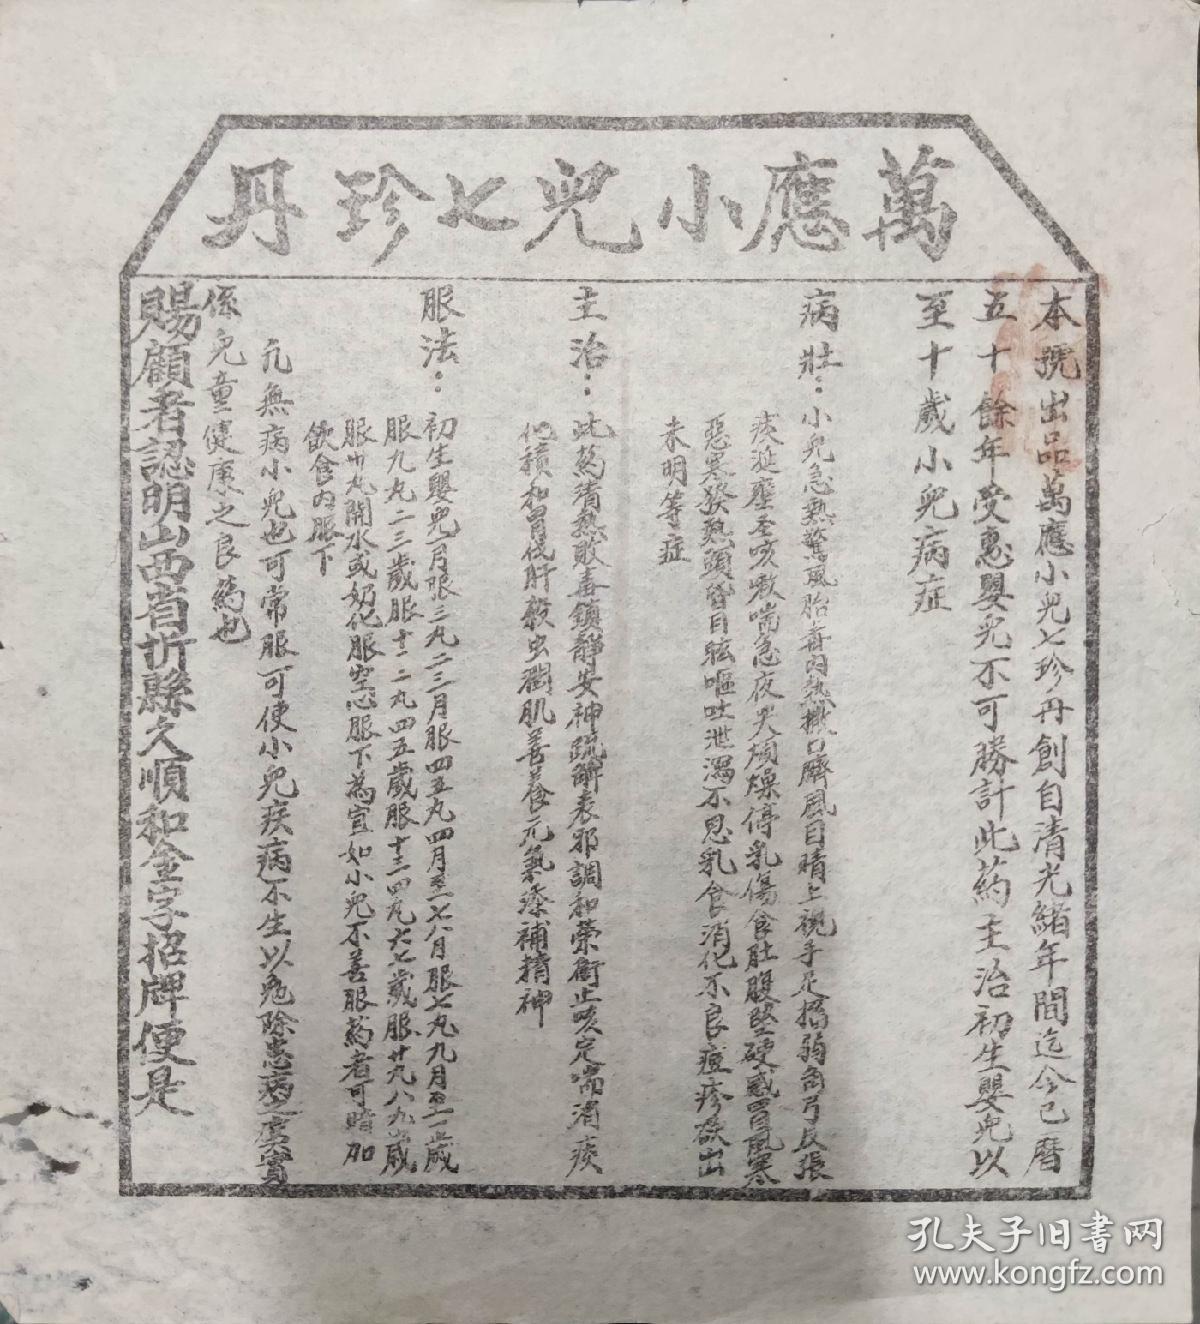 萬應小兒七珍丹
本號出品萬應小兒七珍丹創自清光緒年間迄今已曆
五十餘年受惠嬰兒不可勝計此药主治初生嬰兒以
至十歲小兒病症
病壯：小兒急熱驚風胎毒內熱撒口臍風目睛上視手足搐弱角弓反張
痰涎壅盛咳嗽喘急夜哭煩燥停乳傷食肚腹堅硬感冒風寒
惡寒發熱頭昏目眩嘔吐泄瀉不思乳食消化不良瘟疹欲出
未明等症
主治：此药清熱敗毒鎮靜安神疏解表邪調和榮衛止咳定喘消痰
化積和胃伐肝殺虫潤肌善養元氣滋補精神
服法：初生嬰兒一月服三丸二三月服四五丸四月至七八月服七丸九月至一歲
服九丸二三歲服十二丸四五歲服十三四丸六七歲服廿丸八九歲
服卅丸開水或奶化服空心服下為宜如小兒不善服药者可暗加
飲食內服下
凡無病小兒也可常服可使小兒疾病不生以免除患病之虞實
係兒童健康之良药也
賜顧者認明山西省忻縣久順和金字招牌便是
孔夫子旧书网
www.kongfz.com